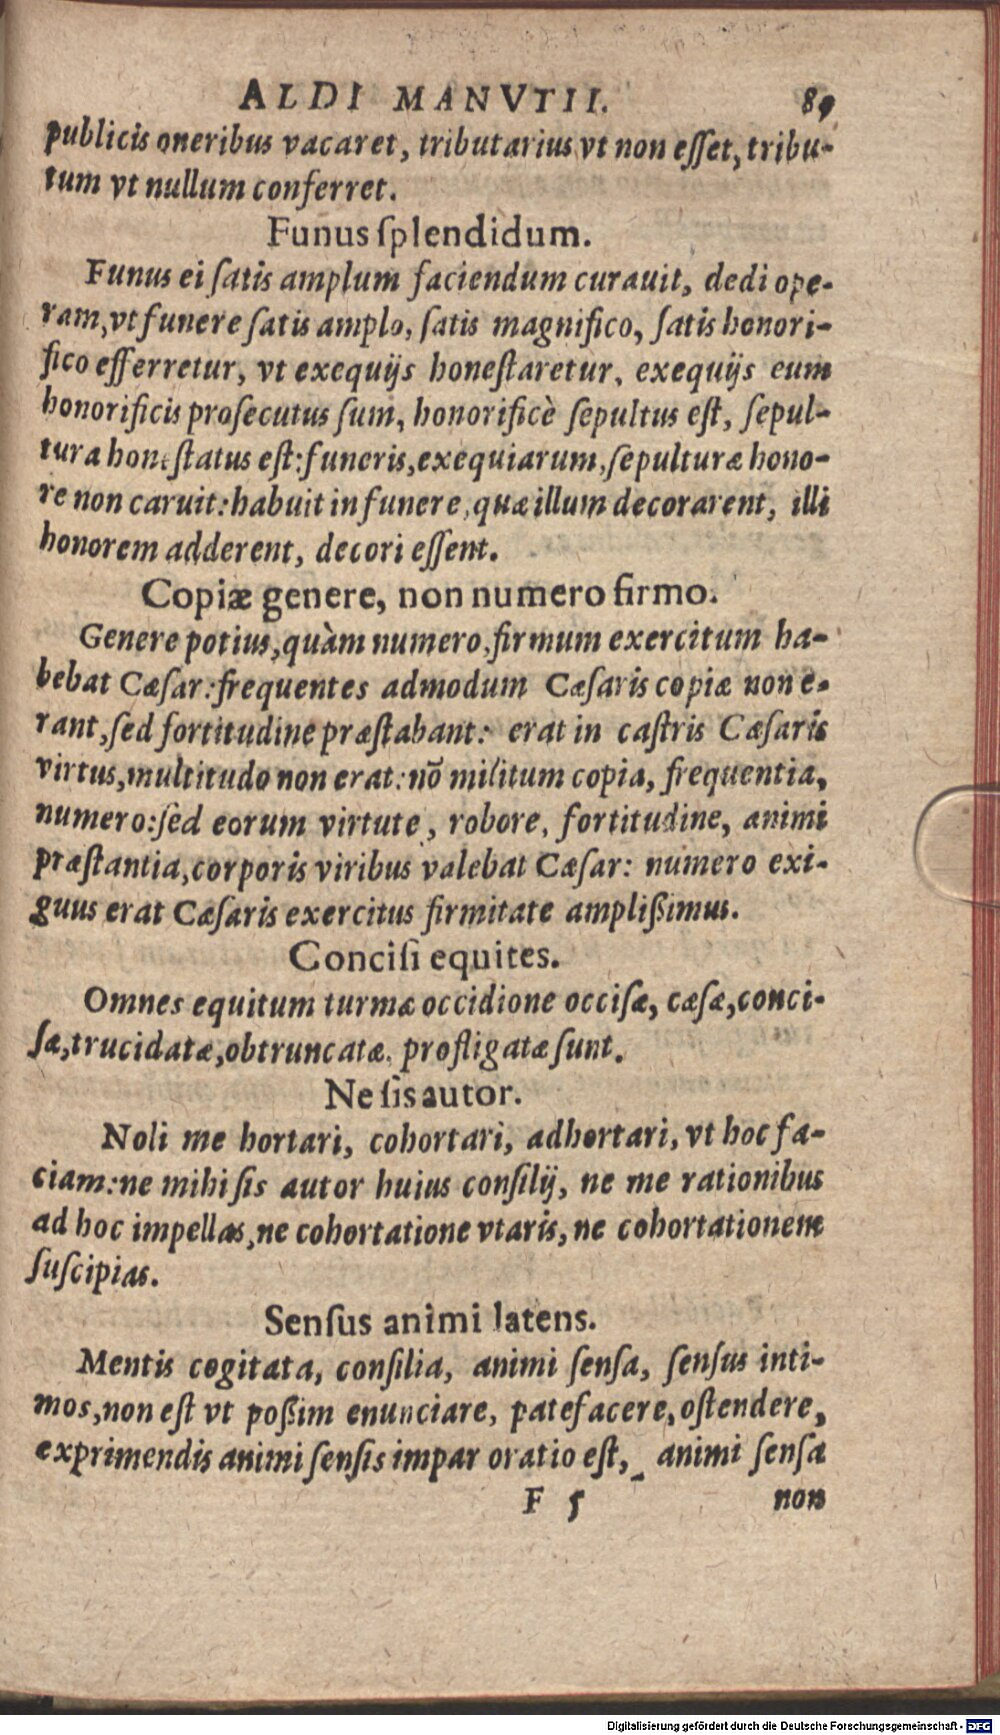 ALDI MANVTII. 89
publicis oneribus vacaret, tributarius vt non eſſet, tribu-
tum vt nullum conferret.
Funus ſplendidum.
Funus ei ſatis amplum faciendum curauit, dedi ope-
ram, vt funere ſatis amplo, ſatis magnifico, ſatis honori-
fico efferretur, vt exequijs honeſtaretur, exequijs eum
honorificis proſecutus ſum, honorificè ſepultus eſt, ſepul-
tura honeſtatus eſt: funeris, exequiarum, ſepulturæ hono-
re non caruit: habuit in funere, quæ illum decorarent, illi
honorem adderent, decori eſſent.
Copiæ genere, non numero firmo.
Genere potius, quàm numero, firmum exercitum ha-
bebat Cæſar: frequentes admodum Cæſaris copiæ non e-
rant, ſed fortitudine præſtabant: erat in caſtris Cæſaris
virtus, multitudo non erat: nō militum copia, frequentia,
numero: ſed eorum virtute, robore, fortitudine, animi
præſtantia, corporis viribus valebat Cæſar: numero exi-
guus erat Cæſaris exercitus firmitate ampliſſimus.
Conciſi equites.
Omnes equitum turmæ occidione occiſæ, cæſæ, conci-
ſæ, trucidatæ, obtruncatæ, profligatæ ſunt.
Ne ſis autor.
Noli me hortari, cohortari, adhortari, vt hoc fa-
ciam: ne mihi ſis autor huius conſilij, ne me rationibus
ad hoc impellas, ne cohortatione vtaris, ne cohortationem
ſuſcipias.
Senſus animi latens.
Mentis cogitata, conſilia, animi ſenſa, ſenſus inti-
mos, non eſt vt poſſim enunciare, patefacere, oſtendere,
exprimendis animi ſenſis impar oratio eſt, animi ſenſa
F 5 non
Digitalisierung gefördert durch die Deutsche Forschungsgemeinschaft - DFG